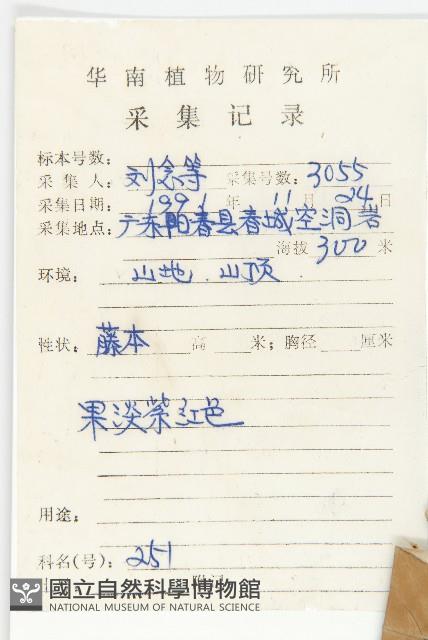 华南植物研究所
采集记录
标本号数:
采集人: 刘念等 采集号数: 3055
采集日期: 1991年 11月 24日
采集地点: 广东阳春县春城空洞岩
海拔 300 米
环境: 山地. 山顶
性状: 藤本 高 米; 胸径 厘米
果淡紫红色
用途:
科名(号): 251
國立自然科學博物館
NATIONAL MUSEUM OF NATURAL SCIENCE